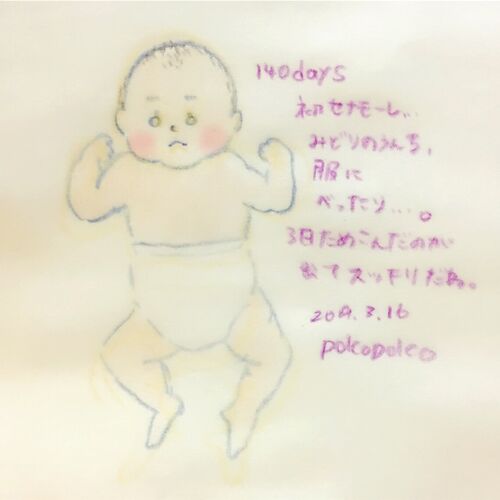 140days
初セナモーレ...
みどりのうんち、
服に
べったり...。
3日ためこんだのが
出てスッキリだね。
2019.3.16
polcopolco